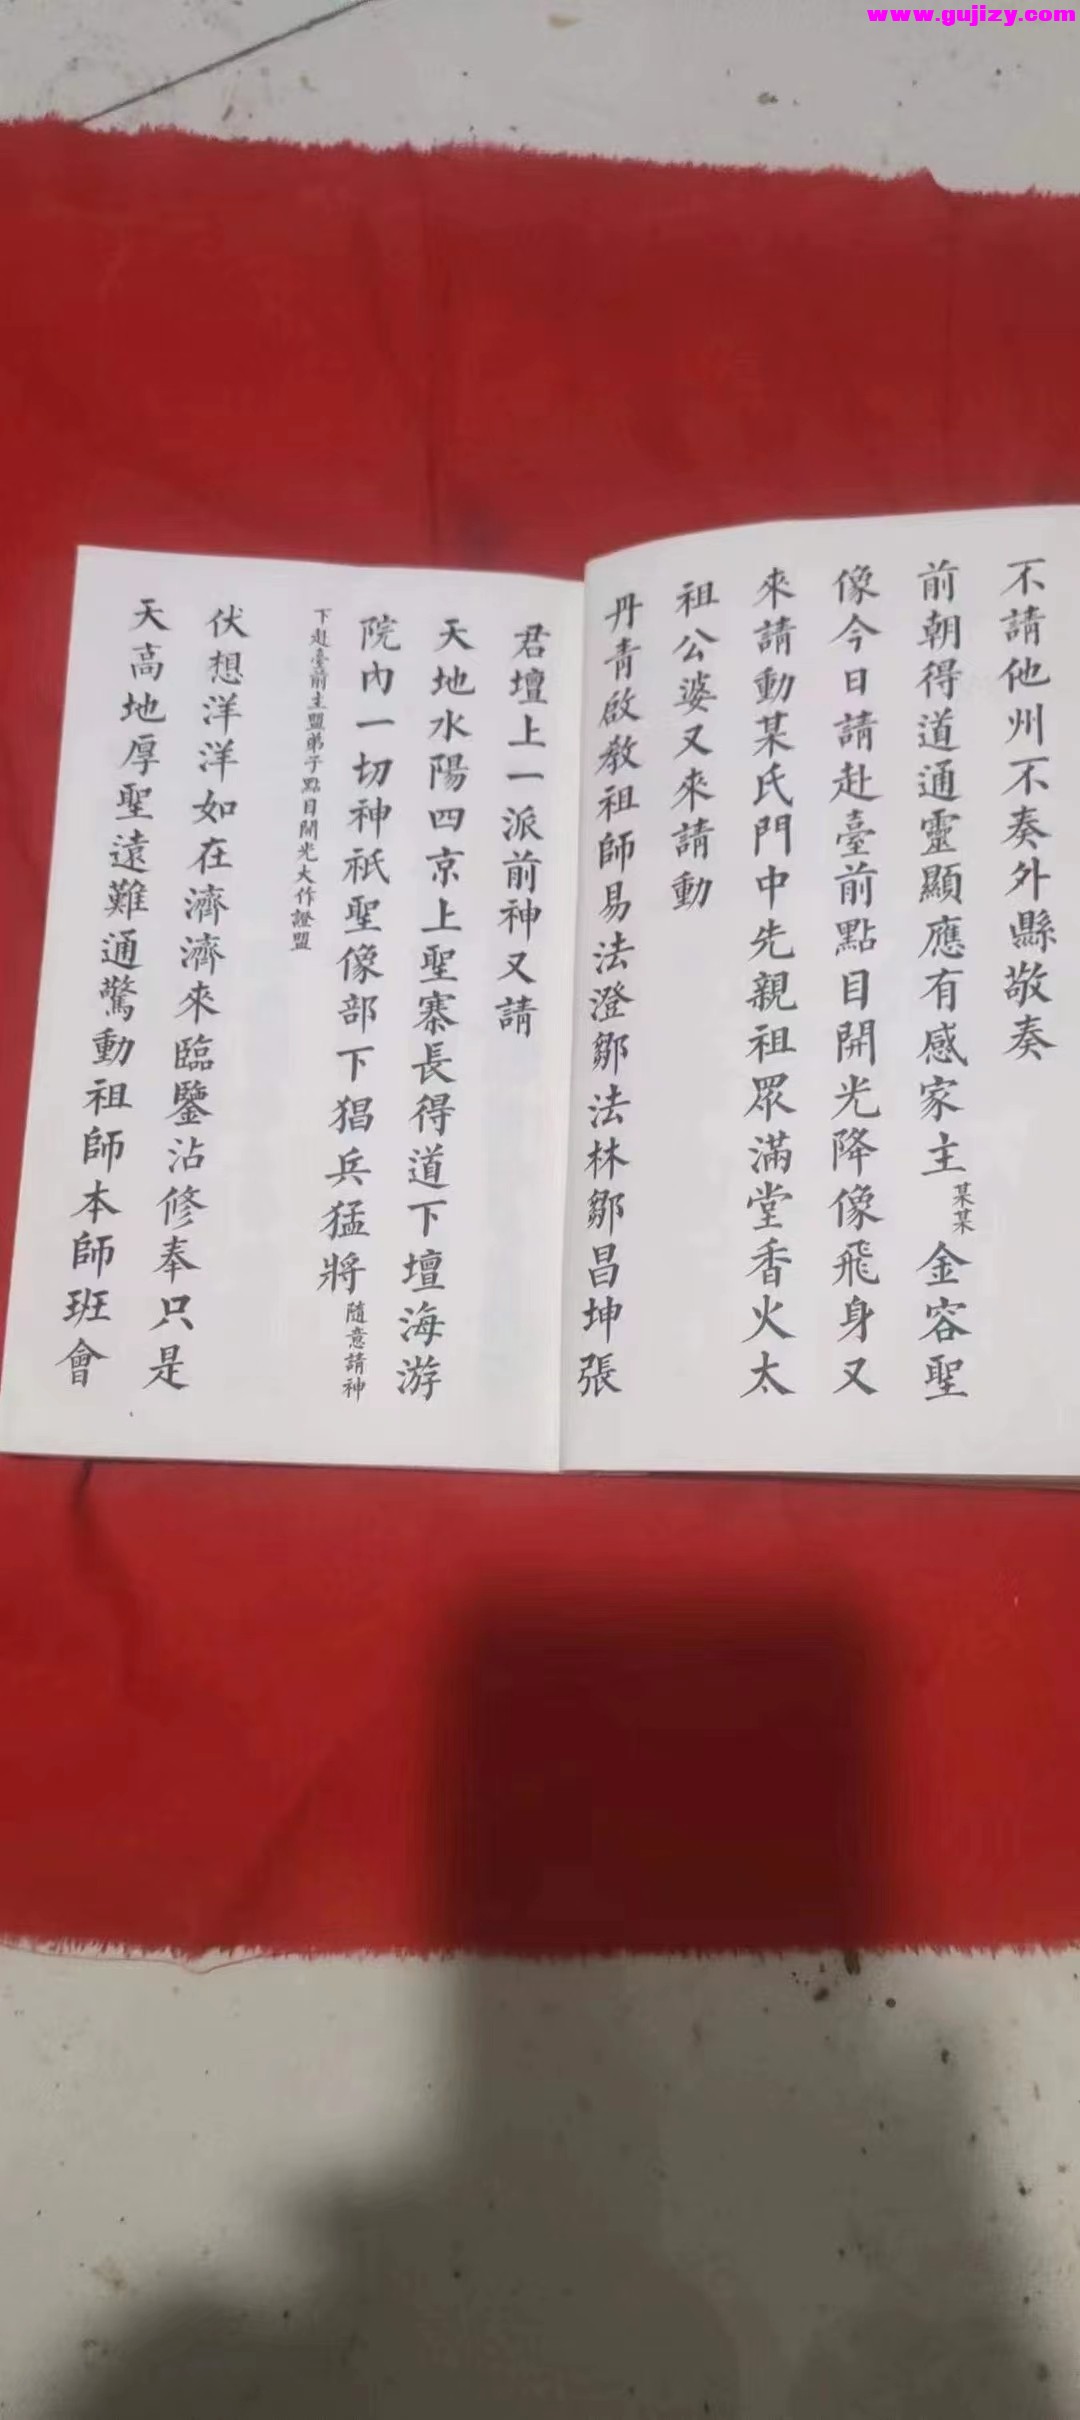 www.gujizy.com
不請他州不奏外縣敬奏
前朝得道通靈顯應有感家主某某金容聖
像今日請赴臺前點目開光降像飛身又
來請動某氏門中先親祖眾滿堂香火太
祖公婆又來請動
丹青啟教祖師易法澄鄒法林鄒昌坤張
君壇上一派前神又請
天地水陽四京上聖寨長得道下壇海游
院內一切神祇聖像部下猖兵猛將隨意請神
下赴臺前主盟弟子點目開光大作證盟
伏想洋洋如在濟濟來臨鑒沾修奉只是
天高地厚聖遠難通驚動祖師本師班會